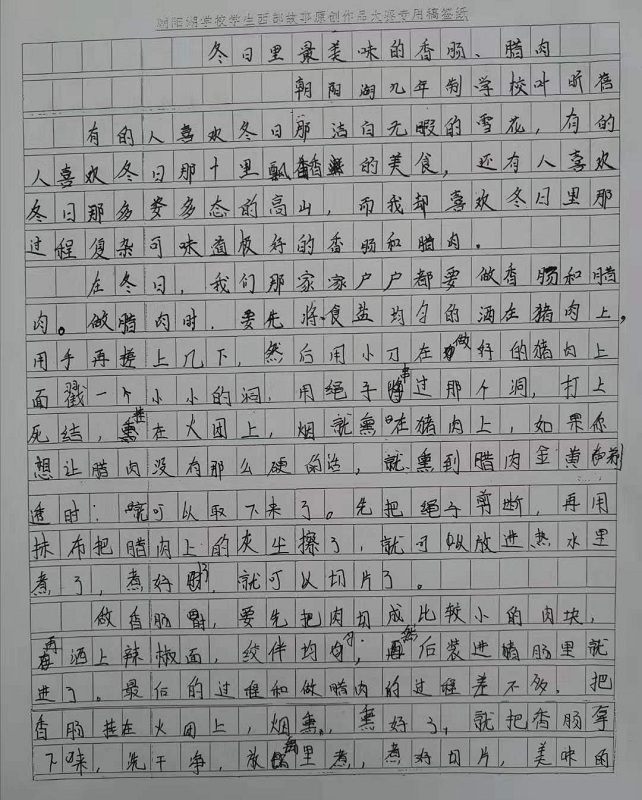 朝阳湖学校学生西部故事原创作品大赛专用稿签纸
冬日里最美味的香肠、腊肉
朝阳湖九年制学校叶昕
有的人喜欢冬日那洁白无暇的雪花，有的
人喜欢冬日那十里飘香的美食，还有人喜欢
冬日那多姿多态的高山，而我却喜欢冬日里那
过程复杂可味道极好的香肠和腊肉。
在冬日，我们那家家户户都要做香肠和腊
肉。做腊肉时，要先将食盐均匀的洒在猪肉上，
用手再搓上几下，然后用小刀在做好的猪肉上
面戳一个小小的洞，用绳子串过那个洞，打上
死结，挂在火团上，烟就熏在猪肉上，如果你
想让腊肉没有那么硬的话，就熏到腊肉金黄
透时，就可以取下来了。先把绳子剪断，再用
抹布把腊肉上的灰尘擦了，就可以放进热水里
煮了，煮好了，就可以切片了。
做香肠，要先把肉切成比较小的肉块，
再洒上辣椒面，绞伴均匀；然后装进猪肠里就
进了。最后的过程和做腊肉的过程差不多，把
香肠挂在火团上，烟熏，熏好了，就把香肠拿
下来，洗干净，放锅里煮，煮好切片，美味的